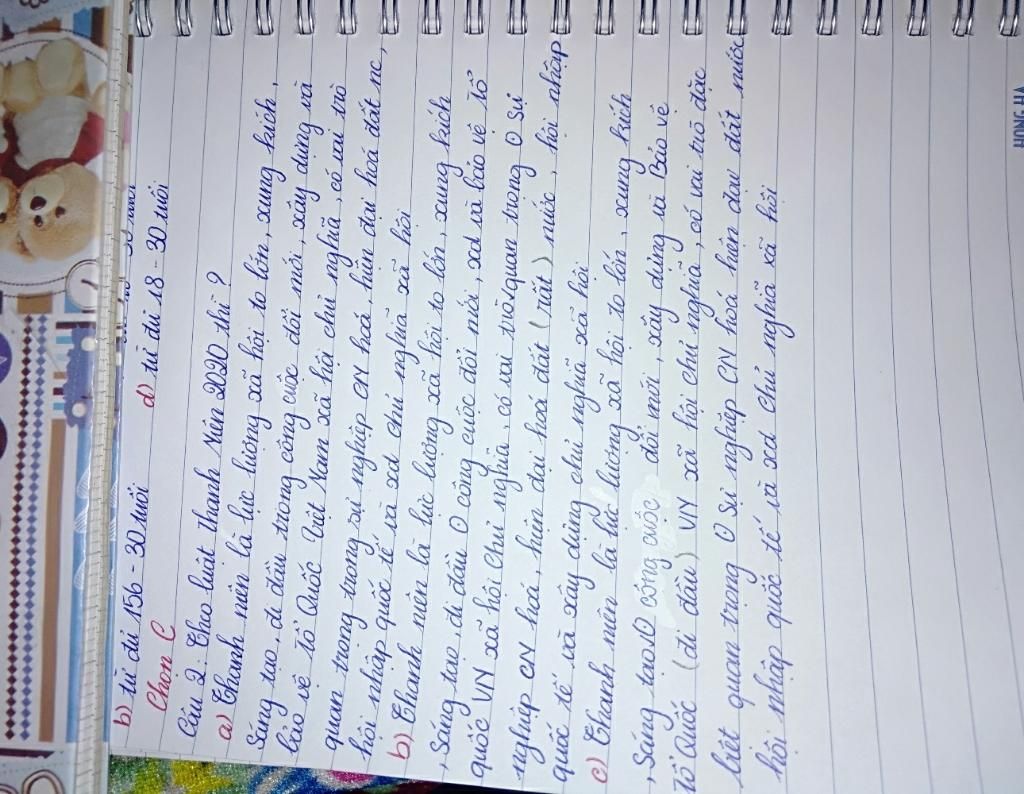 b) từ đủ 156 - 30 tuổi d) từ đủ 18 - 30 tuổi
Chọn C
Câu 2: Theo luật thanh niên 2020 thì?
a) Thanh niên là lực lượng xã hội to lớn, xung kích,
sáng tạo, đi đầu trong công cuộc đổi mới, xây dựng và
bảo vệ Tổ Quốc Việt Nam xã hội chủ nghĩa, có vai trò
quan trong trong sự nghiệp CN hoá, hiện đại hoá đất nc,
hội nhập quốc tế và xd chủ nghĩa xã hội
b) Thanh niên là lực lượng xã hội to lớn, xung kích
, sáng tạo, đi đầu O công cuộc đổi mới, xd và bảo vệ tổ
quốc VN xã hội chủ nghĩa, có vai trò quan trong O sự
nghiệp CN hoá, hiện đại hoá đất (rất) nước, hội nhập
quốc tế và xây dựng chủ nghĩa xã hội
c) Thanh niên là lực lượng xã hội to lớn, xung kích
, sáng tạo O công cuộc đổi mới, xây dựng và Bảo vệ
Tổ Quốc (đi đầu) VN xã hội chủ nghĩa, có vai trò đặc
biệt quan trọng O sự nghiệp CN hoá hiện đại đất nước
hội nhập quốc tế và xd chủ nghĩa xã hội
HONG HA